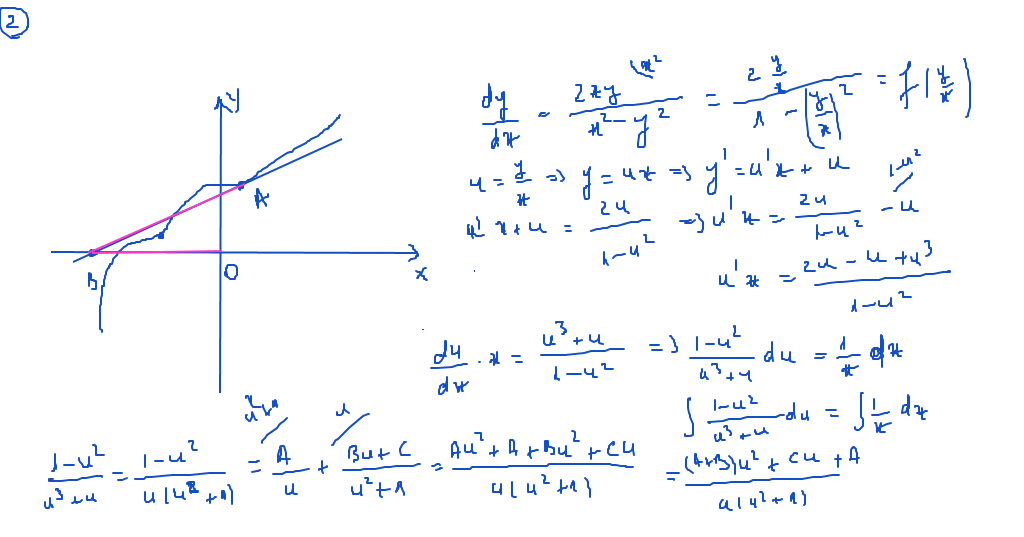 2
y
A
B
O
x
dy/dx = 2xy/(x² - y²) = 2 y/x / (1 - (y/x)²) = f(y/x)
x²
u = y/x => y = ux => y' = u'x + u
u'x + u = 2u/(1-u²) => u'x = 2u/(1-u²) - u
1-u²
u'x = (2u - u + u³)/(1-u²)
du/dx · x = (u³+u)/(1-u²) => (1-u²)/(u³+u) du = 1/x dx
∫ (1-u²)/(u³+u) du = ∫ 1/x dx
(1-u²)/(u³+u) = (1-u²)/(u(u²+1)) = A/u + (Bu+C)/(u²+1) = (Au² + A + Bu² + Cu)/(u(u²+1)) = ((A+B)u² + Cu + A)/(u(u²+1))
u